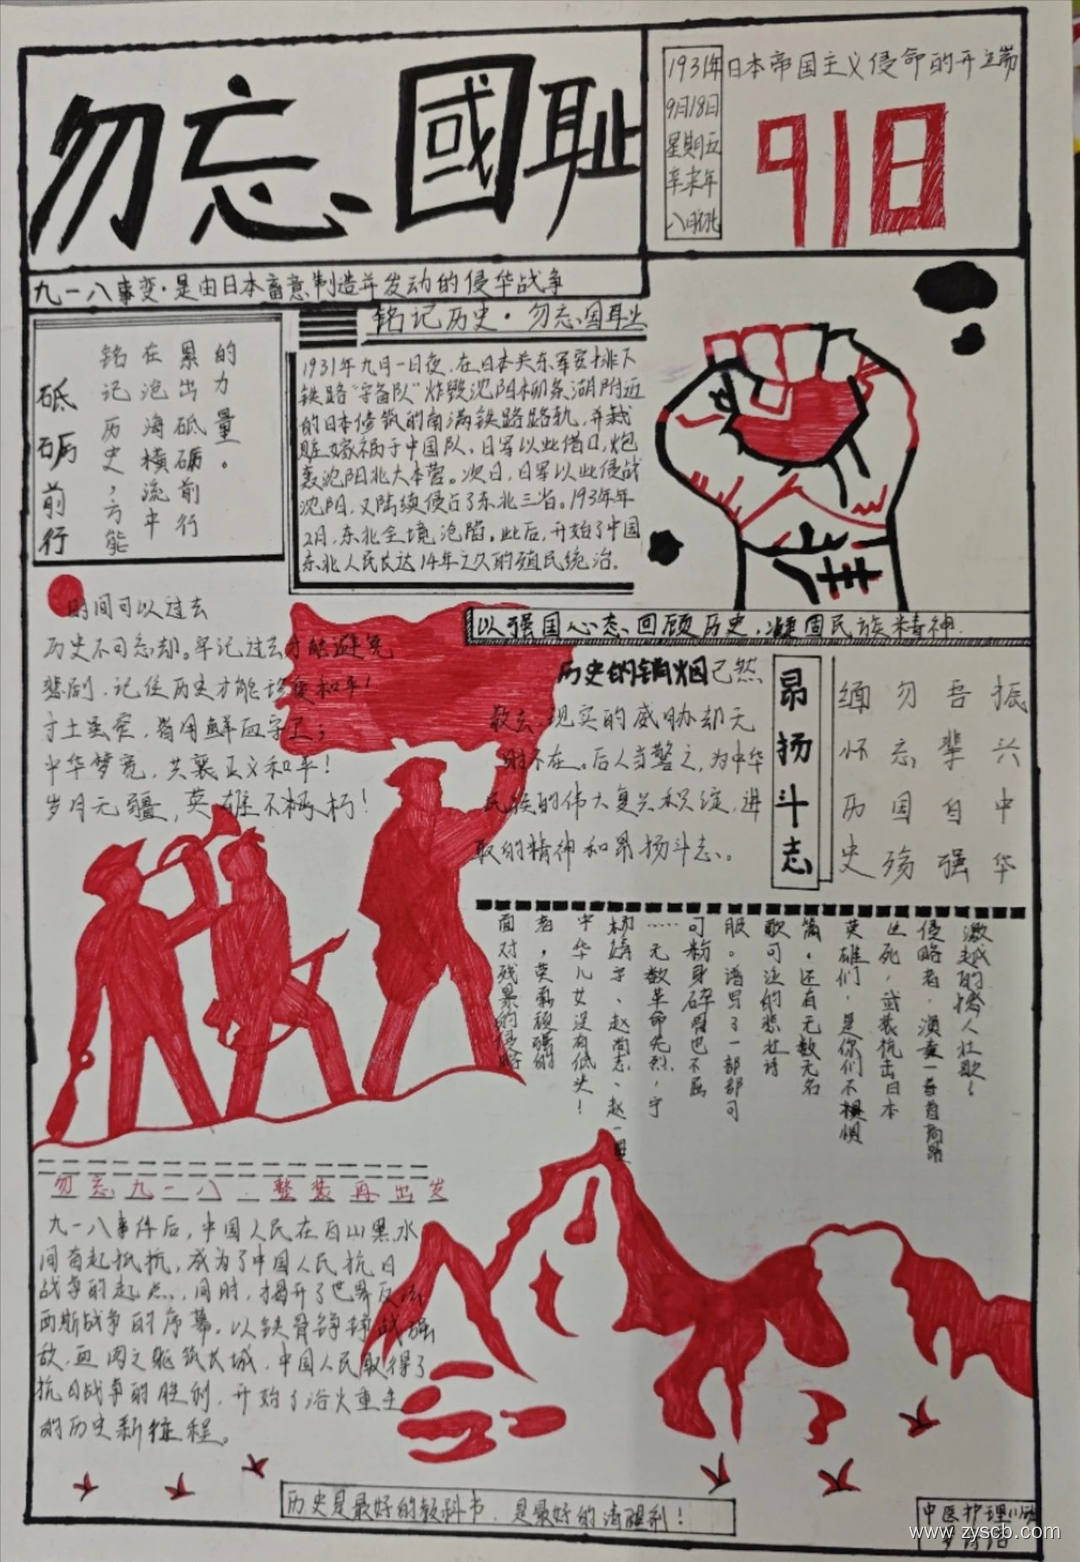 勿忘國耻
1931年
9月18日
星期五
辛未年
日本帝国主义侵命的开端
918
九一八事变·是由日本蓄意制造并发动的侵华战争
砥砺前行
铭记历史，方能
在沧海横流中
累出砥砺前行
的力量。
铭记历史·勿忘国耻
1931年九月一日夜，在日本关东军安排下
铁路“守备队”炸毁沈阳柳条湖附近
的日本修筑的南满铁路路轨，并栽
赃嫁祸于中国队，日军以此借口，炮
轰沈阳北大本营。次日，日军以此侵战
沈阳，又陆续侵占了东北三省。193年年
2月，东北全境沦陷。此后，开始了中国
东北人民长达14年之久的殖民统治。
时间可以过去
历史不可忘却。牢记过去才能避免
悲剧，记住历史才能珍爱和平！
寸土
皆用鲜血守卫；
中华梦寃，共襄正义和平！
岁月无疆，英雄不朽！
以强国心态回顾历史，凝固民族精神.
历史的销烟已然
散去，现实的威胁却无
时不在。后人当警之，为中华
民族的伟大复兴积淀，进
取的精神和昂扬斗志。
昂扬斗志
缅怀历史
勿忘国殇
吾辈自强
振兴中华
面对残暴的侵略
者，英勇顽强的
中华儿女没有低头！
杨靖宇、赵尚志、赵一曼
……无数革命先烈，宁
可粉身碎骨也不屈
服。谱写了一部部可
歌可泣的悲壮诗
篇。还有无数无名
英雄们，是你们不惧
死，武装抗击日本
侵略者，演奏一首首高昂
激越的撼人壮歌！
勿忘九一八，整装再出发
九一八事件后，中国人民在白山黑水
间首起抵抗，成为了中国人民抗日
战争的起点，同时，揭开了世界反法
西斯战争的序幕。以铁骨铮铮战强
敌，血肉之躯筑长城，中国人民取得了
抗日战争的胜利，开始了浴火重生
的历史新征程。
历史是最好的教科书，是最好的清醒剂！
中医护理
www.zyscb.com